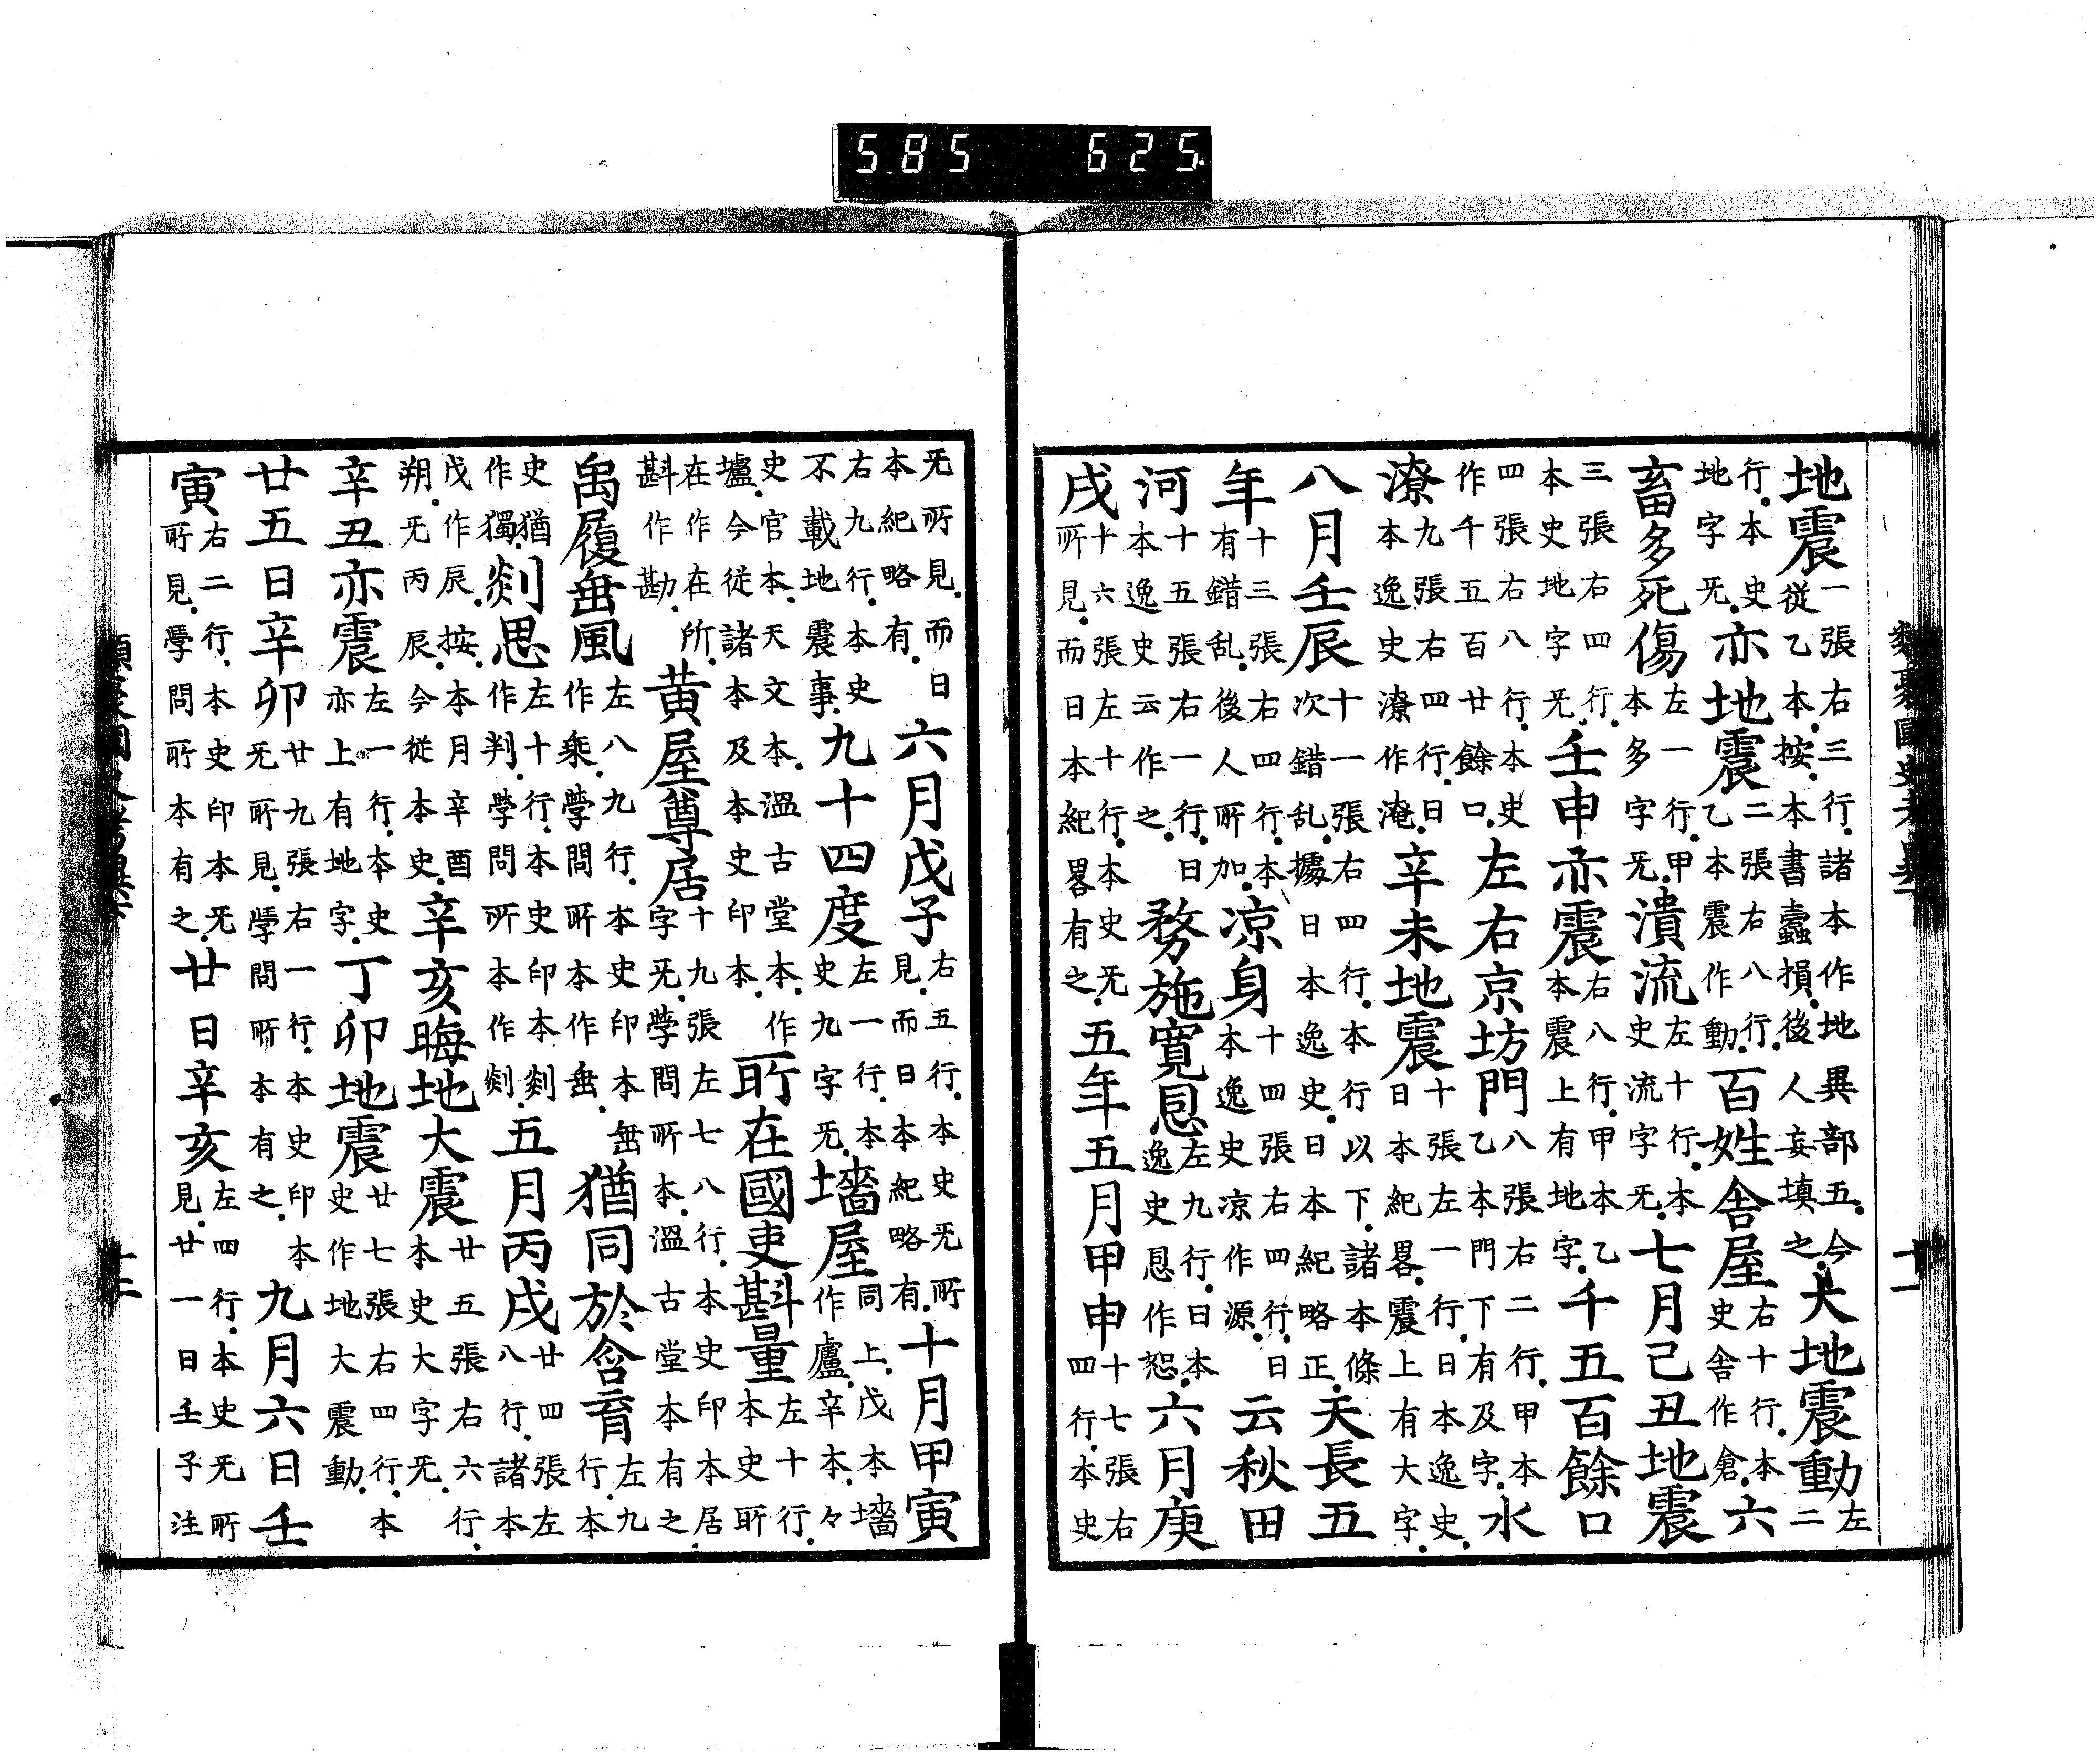 類聚國史考異 十一
地震一張右三行。諸本作地異部五。今從乙本。按。本書蠹損。後人妄填之。大地震動左二
行。本史地字旡。亦地震二張右八行。乙本震作動。百姓舎屋右十行。本史舎作倉。六
畜多死傷左一行。甲本多字旡。潰流左十行。本史流字旡。七月己丑地震
三張右四行。本史地字旡。壬申亦震右八行。甲本乙本震上有地字。千五百餘口
四張右八行。本史作千五百廿餘口。左右京坊門八張右二行。甲本乙本門下有及字。水
潦九張右四行。日本逸史潦作淹。辛未地震十張左一行。日本逸史。日本紀畧。震上有大字。
八月壬辰十一張右四行。本行以下。諸本條次錯乱。據日本逸史。日本紀略正。天長五
年十三張右四行。本有錯乱。後人所加。凉身十四張右四行。日本逸史凉作源。云秋田
河十五張右一行。日本逸史云作之。務施寛恩左九行。日本逸史恩作恕。六月庚
戌十六張左十行。本史旡所見。而日本紀畧有之。五年五月甲申十七張右四行。本史
旡所見。而日本紀略有。六月戊子右五行。本史旡所見。而日本紀略有。十月甲寅
右九行。本史不載地震事。九十四度左一行。本史九字旡。墻屋同上。戊本墻作廬。辛本々
史官本。天文本。溫古堂本。作壚。今從諸本及本史印本。所在國吏斟量左十行。本史所
在作在所。斟作勘。黄屋尊居十九張左七八行。本史印本居字旡。學問所本。溫古堂本有之。
禹履無風左八九行。本史印本無作乘。学問所本作無。猶同於含育左九行。本
史猶作獨。剡思左十行。本史印本剡作判。学問所本作剡。五月丙戌廿四張左八行。諸本
戊作辰。按。本月辛酉朔。旡丙辰。今從本史。辛亥晦地大震廿五張右六行。本史大字旡。
辛丑亦震左一行。本史亦上有地字。丁卯地震廿七張右四行。本史作地大震動。
廿五日辛卯廿九張右一行。本史印本旡所見。学問所本有之。九月六日壬
寅右二行。本史印本旡所見。学問所本有之。廿日辛亥左四行。本史旡所見。廿一日壬子注
類聚國史考異 十二
585 625